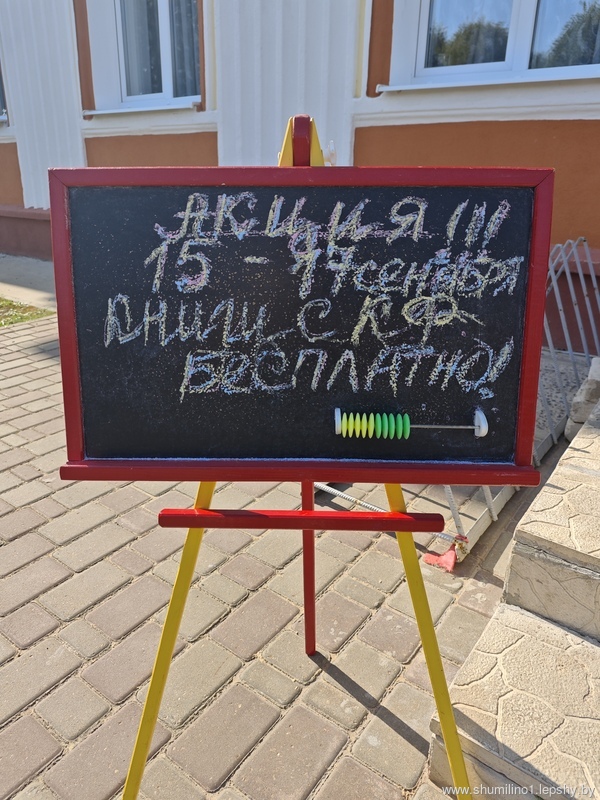 АКЦИЯ!!!
15 - 17 сентября
КНИГИ С КФ
БЕСПЛАТНО!
www.shumilino1.lepshy.by